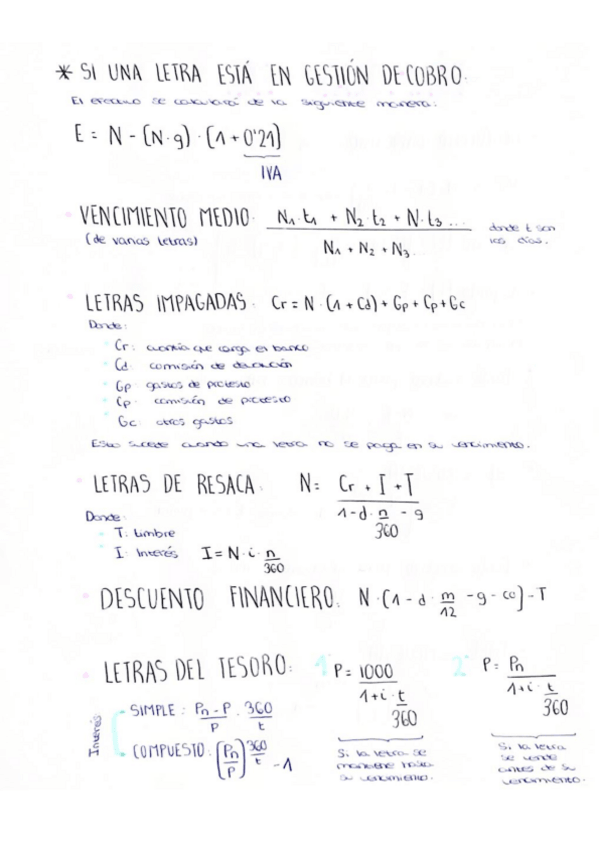 * SI UNA LETRA ESTÁ EN GESTIÓN DE COBRO.
El efectivo se calculará de la siguiente manera:
E = N - (N·g) · (1 + 0'21)
IVA
VENCIMIENTO MEDIO. N1·t1 + N2·t2 + N·t3 ... / N1 + N2 + N3
donde t son los días.
(de varias letras)
LETRAS IMPAGADAS. Cr = N · (1 + Cd) + Gp + Cp + Gc
Donde:
Cr: cuantía que carga el banco
Cd: comisión de devolución
Gp: gastos de protesto
Cp: comisión de protesto
Gc: otros gastos
Esto sucede cuando una letra no se paga en su vencimiento.
LETRAS DE RESACA. N = Cr + I + T / 1 - d · n/360 - g
Donde:
T: timbre
I: Interés I = N · i · n/360
DESCUENTO FINANCIERO. N · (1 - d · m/12 - g - co) - T
LETRAS DEL TESORO:
Interés
SIMPLE: Pn - P / P · 360 / t
COMPUESTO: (Pn/P)^360/t - 1
1 P = 1000 / 1 + i · t/360
Si la letra se
mantiene hasta
su vencimiento.
2 P = Pn / 1 + i · t/360
Si la letra
se vende
antes de su
vencimiento.